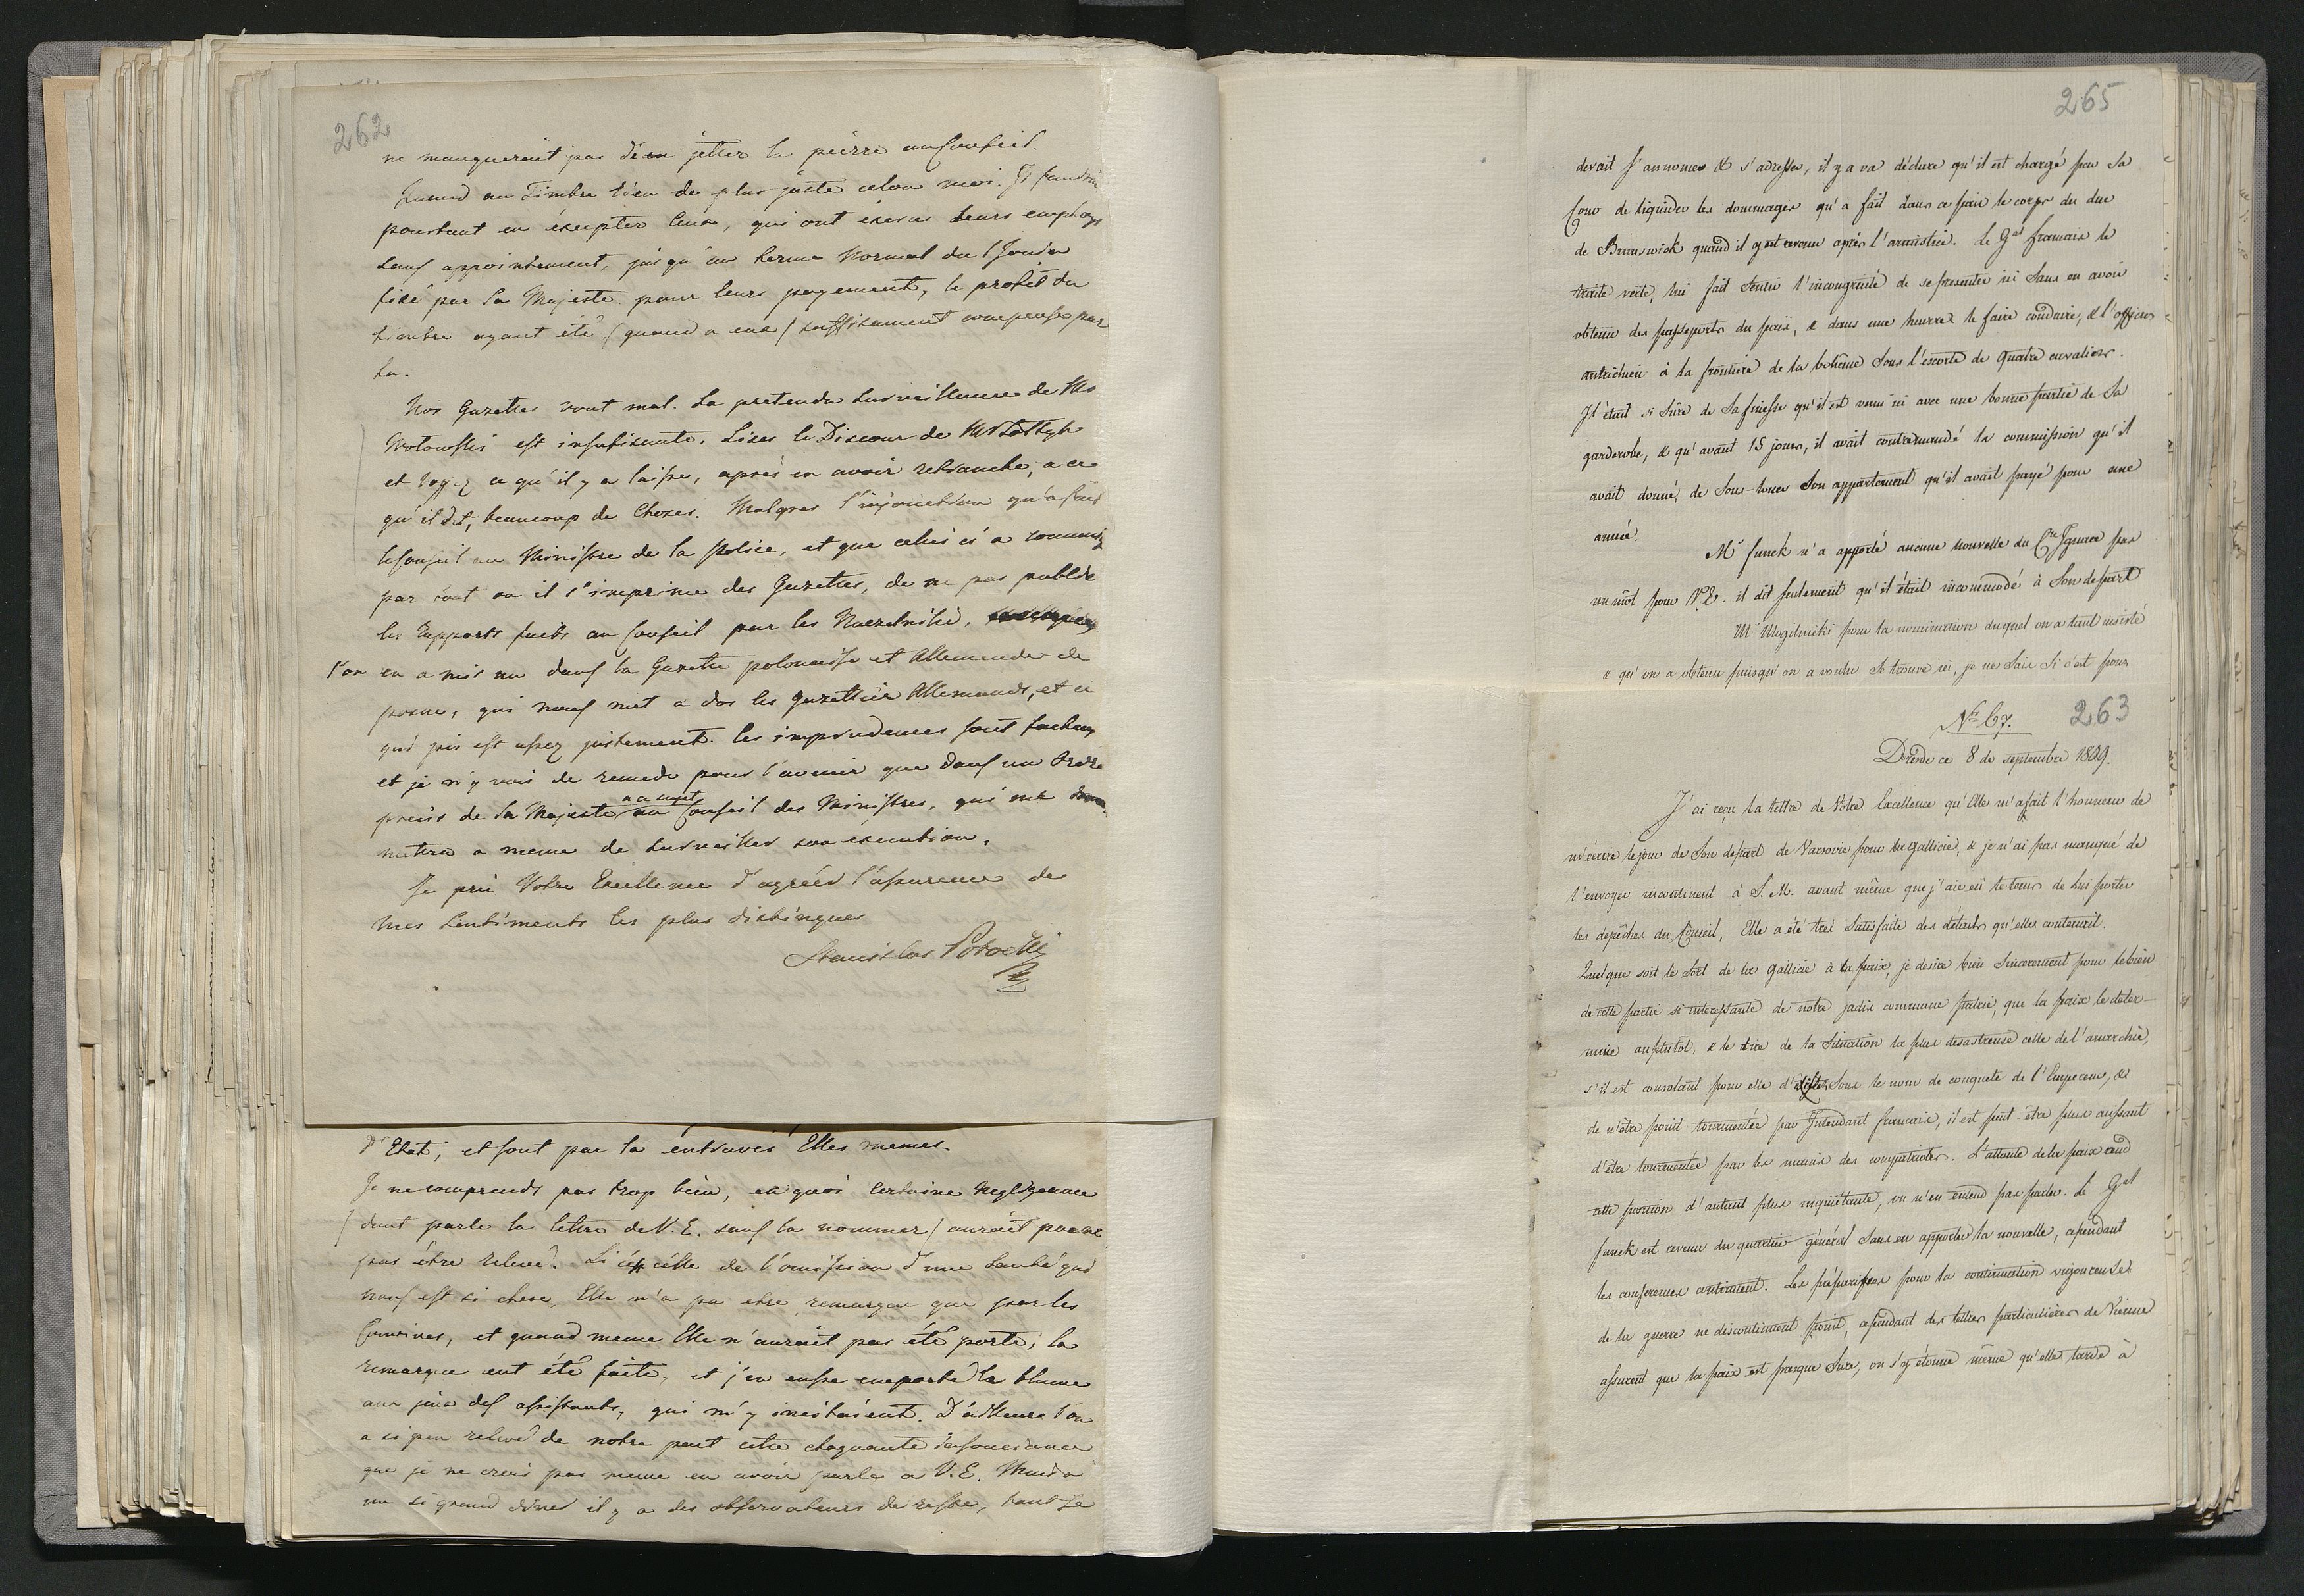 262
ne manqueroit pas d'en jetter la pierre au Conseil.
Quand au Timbre rien de plus juste celon moi. Il faudroit
pourtant en éxcepter ceux, qui ont éxercés leurs employs
sans appointement, jusqu'au terme normal du 1 Janvier
fixé par Sa Majeste pour leurs payement, le profit du
timbre ayant été (quand a eux) suffisament compensé par
la.
Nos Gazettes vont mal. La pretendu surveillance de Mr
est insufisante. Lisez le Discour de Mr
et voyez ce qu'il y a laissé, après en avoir retranché, a ce
qu'il dit, beaucoup de choses. Malgres l'injonction qu'a fait
le Conseil au Ministre de la Police, et que celui ci a communiq
par tout ou il s'imprime des Gazettes, de ne pas publié
les Rapports faits au Conseil par les
l'on en a mis un dans la Gazette polonaise et Allemande de
posna, qui nous met a dos les gazettier Allemands, et ce
qui pis est assez justement. Ces imprudences sont facheuses
et je n'y vois de remede pour l'avenir que dans un Ordre
précis de Sa Majesté au Conseil des Ministres, qui me
mettra a meme de surveiller son éxecution.
Je prie Votre Excellence d'agréer l'assurance de
mes sentiments les plus distingues
Stanislas Potocki
d'Etat, et sont par la éntravés Elles memes.
Je ne comprends pas trop bien, en quoi certaine Negligeance
(dont parle la lettre de V. E. sans la nommer) auroit pu ne
pas être relevé. Si c'est celle de l'omission d'une santé qui
nous est si chere, Elle n'a pu etre remarque que par les
Convives, et quand meme Elle n'auroit pas été porté, la
remarque eut été faite, et j'en eusse emporté le blame
aux jeux des assistants, qui m'y incitoient. D'ailleurs l'on
a si peu relevé de notre part cette choquante insouciance
que je ne crois pas meme en avoir parlé a V. E. Mais a
un si grand diner il y a des observateurs de reste, tant se
265
devait s'annoncer & s'adresser, il y a va déclare qu'il est chargé par Sa
Cour de liquider les dommages qu'a fait dans ce païs le corps du duc
de Brunswick quand il y est revenu après l'armistice. le Gal français le
traite verte, lui fait sentir l'incongruité de se presenter ici sans en avoir
obtenu des passeports du païs, & dans une heure le faire conduire, & l'officier
autrichien à la frontière de la bohême sous l'escorte de quatre cavaliers.
Il était si sûre de sa finesse qu'il est venu ici avec une bonne partie de Sa
garderobe, & qu'avant 15 jours, il avait contremandé la commission qu'il
avait donné, de Sous-louer Son appartement qu'il avait payé pour une
année.
Mr funck n'a apporté aucune nouvelle du Cte Ignace pas
un môt pour V. E. il dit seulement qu'il était incommodé à Son depart
Mr Mogilnicki pour la nomination duquel on a tant insisté
& qu'on a obtenu puisqu'on a voulu se trouve ici, je ne sais si c'est pour
263
No 67.
Dresde ce 8 de septembre 1809.
J'ai reçu la lettre de Votre Excellence qu'Elle m'a fait l'honneur de
m'écrire le jour de Son depart de Varsovie pour la gallicie, & je n'ai pas manqué de
l'envoyer incontinent à S. M. avant même que j'aie eü le tems de Lui porter
les depêches du Conseil, Elle a été très satisfaite des détails qu'elles contenait.
Quelque soit le sort de la gallicie à la paix, je desire bien sincerement pour le bien
de cette partie si intéressante de notre jadis commune patrie, que la paix le déter-
mine aussitôt, & le tire de la situation la plus desastreuse celle de l'anarchie,
s'il est consolant pour elle d'exister sous le nom de conquete de l'Empereur, &
de n'être point tourmentée par Intendant français, il est peut-être plus cuissant
d'être tourmentée par les mains des compatriotes. L'attente de la paix rend
cette position d'autant plus inquiétante, on n'en entend pas parler. Le Gal
funck est revenu du quartier général sans en apporter la nouvelle, cependant
les conferences continuent. Les préparatifs pour la continuation vigoureuse
de la guerre ne discontinuent point, cependant des lettres particulières de Vienne
assurent que la paix est presque sure, on s'y étonne même qu'elle tarde à